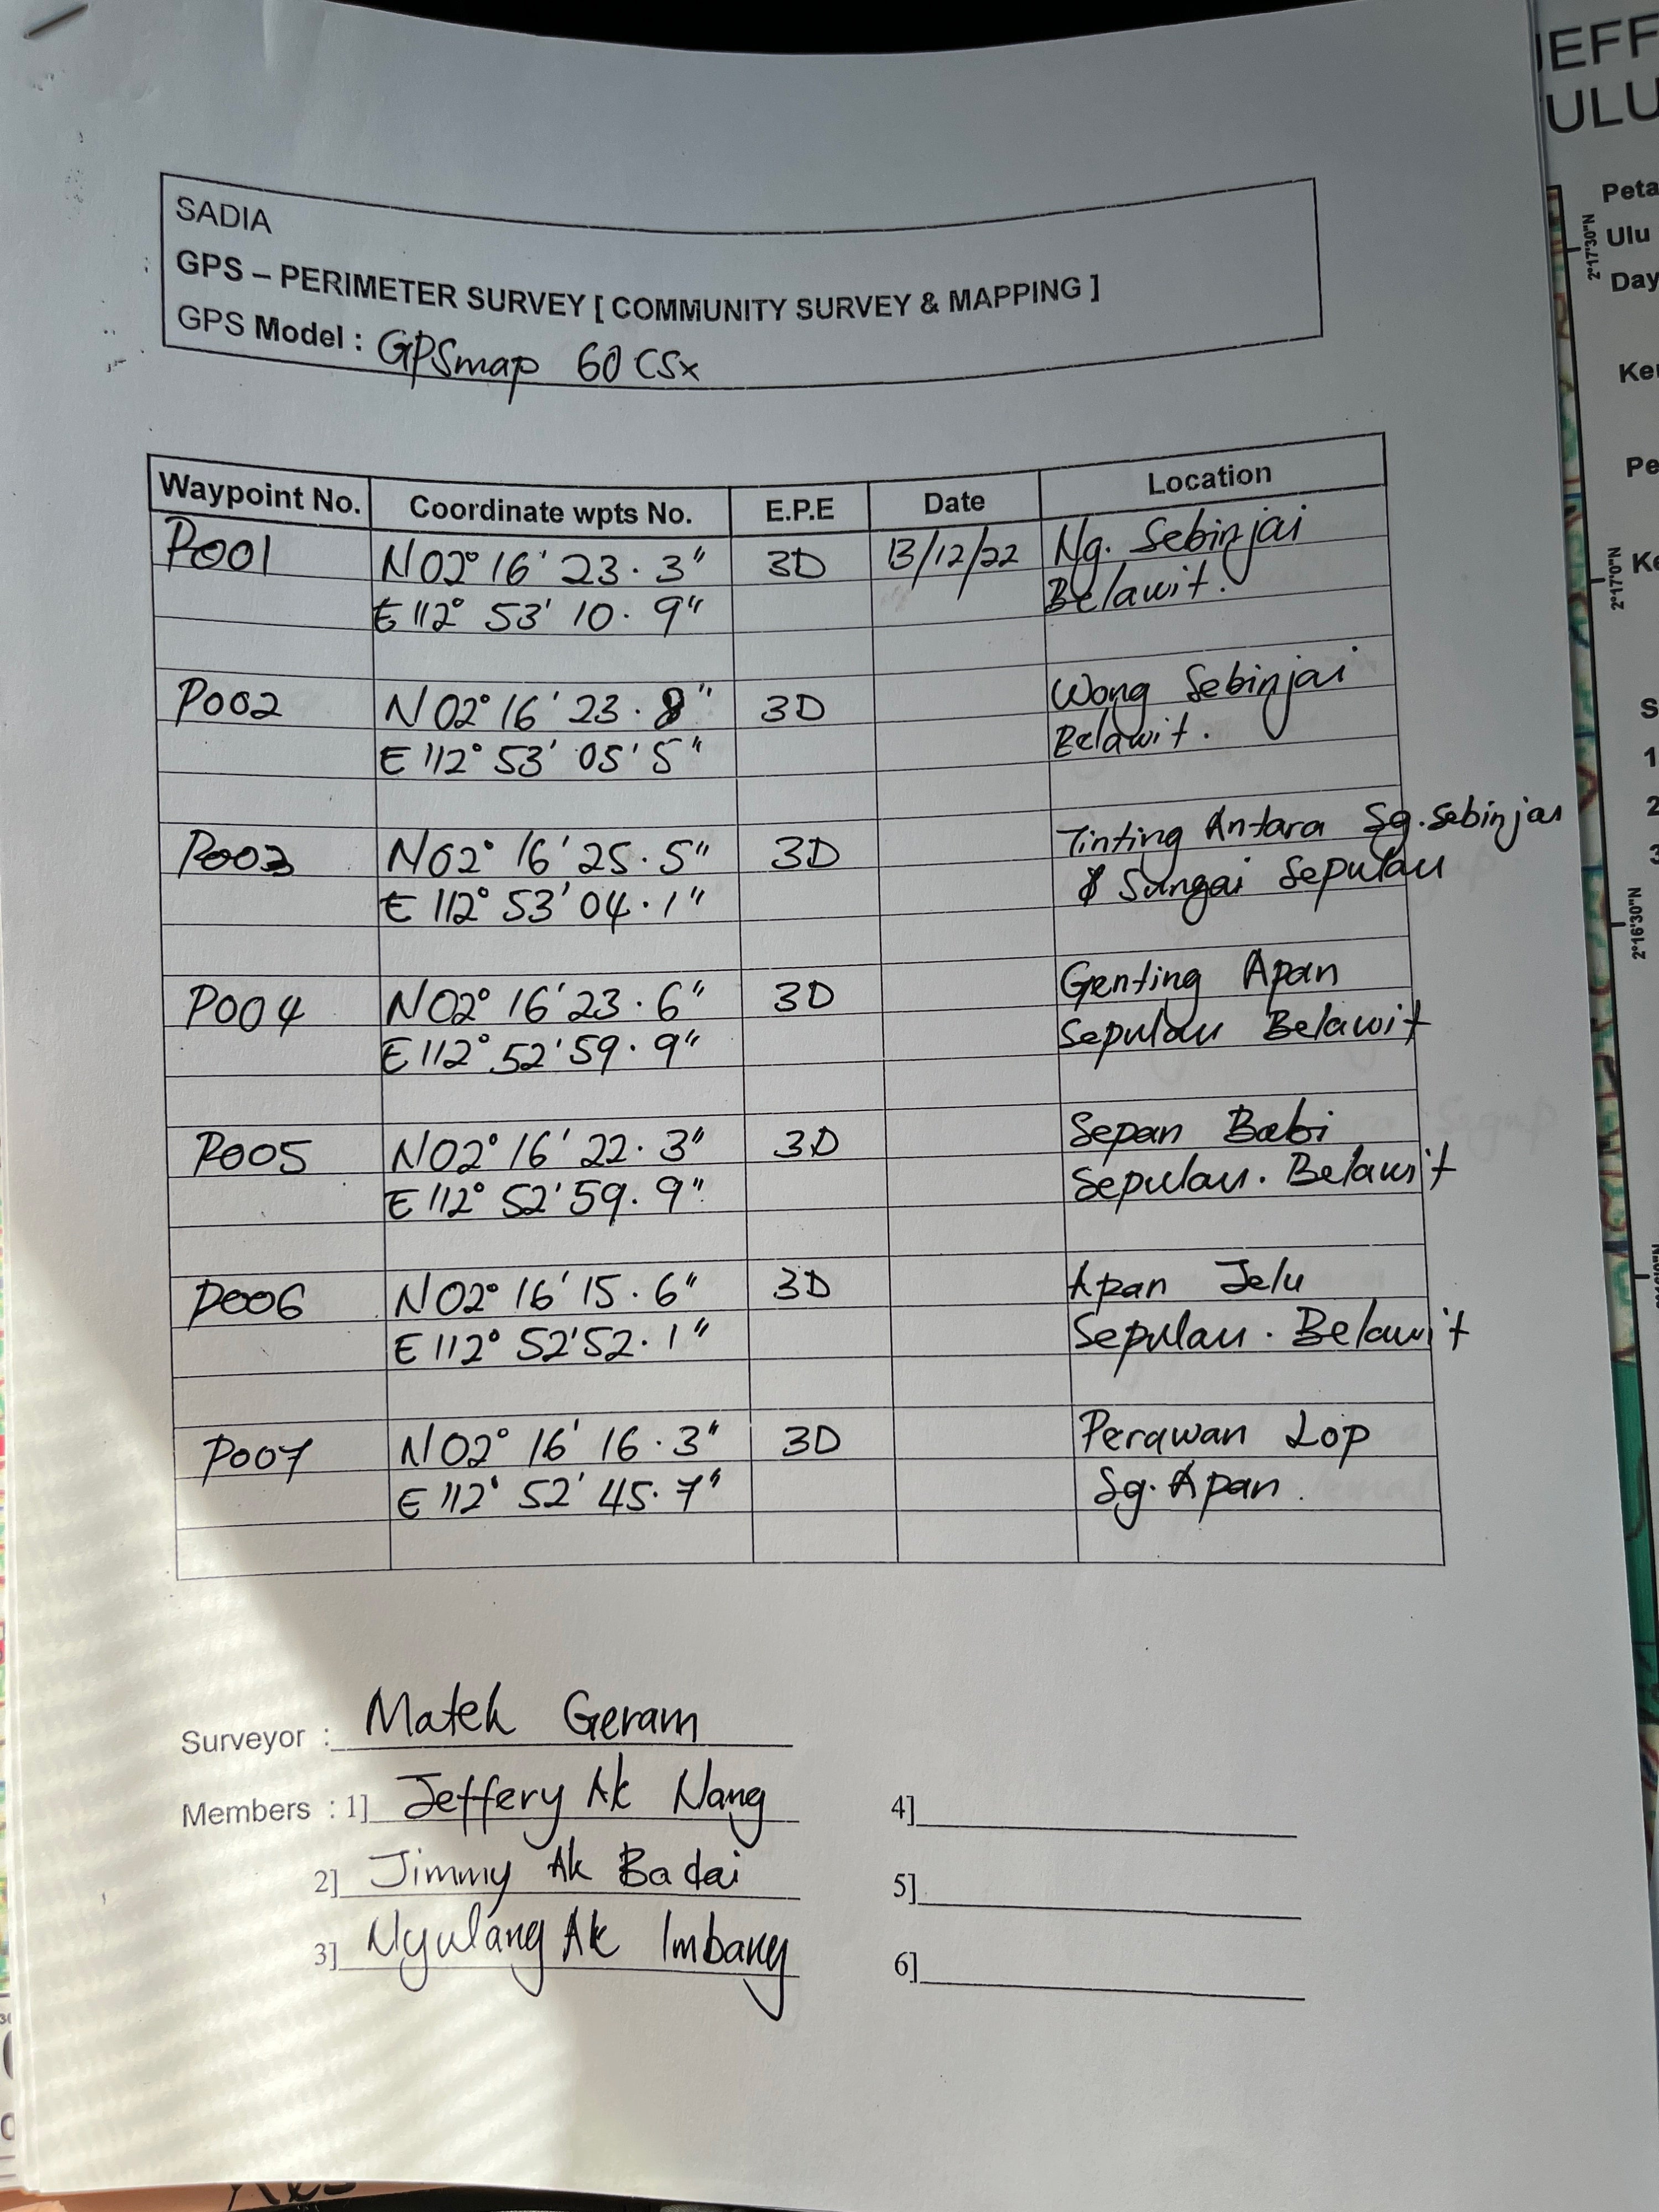 SADIA
GPS – PERIMETER SURVEY [ COMMUNITY SURVEY & MAPPING ]
GPS Model : GPSmap 60 CSx
Waypoint No. Coordinate wpts No. E.P.E Date Location
P001 N 02° 16' 23.3" 3D 13/12/22 Ng. Sebinjai
E 112° 53' 10.9" Belawit.
P002 N 02° 16' 23.8" 3D Wong Sebinjai
E 112° 53' 05'5" Belawit.
P003 N 02° 16' 25.5" 3D Tinting Antara Sg. Sebinjai
E 112° 53' 04.1" & Sungai Sepulau
P004 N 02° 16' 23.6" 3D Genting Apan
E 112° 52' 59.9" Sepulau Belawit
P005 N 02° 16' 22.3" 3D Sepan Babi
E 112° 52' 59.9" Sepulau. Belawit
P006 N 02° 16' 15.6" 3D Apan Jelu
E 112° 52' 52.1" Sepulau. Belawit
P007 N 02° 16' 16.3" 3D Perawan Lop
E 112° 52' 45.7" Sg. Apan.
Surveyor : Matek Geram
Members : 1] Jeffery Ak Nang 4]
2] Jimmy Ak Badai 5]
3] Nyulang Ak Imbang 6]
JEFF
ULU
Peta
2°17'30"N
Ulu
Day
2°17'0"N
2°16'30"N